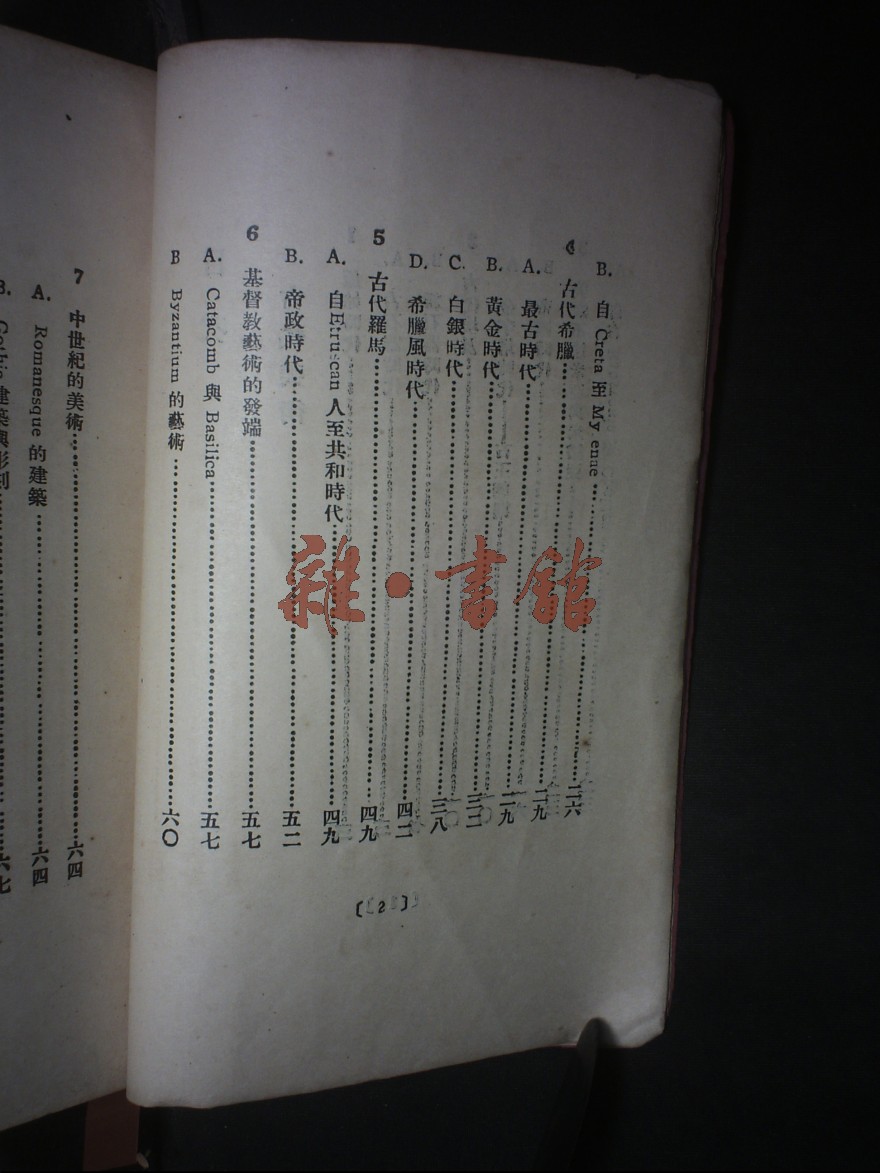 B. 自 Creta 至 My enae……二六
4 古代希臘……二九
A. 最古時代……二九
B. 黃金時代……三二
C. 白銀時代……三八
D. 希臘風時代……四二
5 古代羅馬……四九
A. 自Etruscan 人至共和時代……四九
B. 帝政時代……五二
6 基督教藝術的發端……五七
A. Catacomb 與 Basilica……五七
B Byzantium 的藝術……六〇
〔2〕
7 中世紀的美術……六四
A. Romanesque 的建築……六四
B. Gothic 建築與彫刻……六七
雜·書館